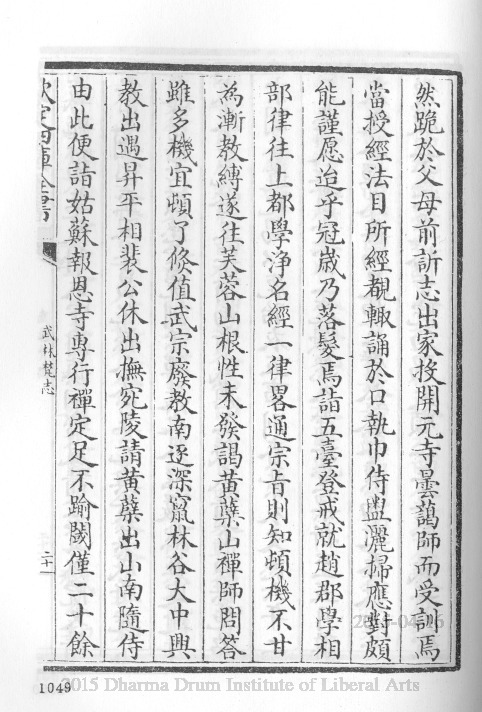 然跪於父母前訴志出家投開元寺曇藹師而受訓焉
當授經法目所經覩輙誦於口執巾侍盥灑掃應對頗
能謹愿迨乎冠歳乃落髮焉詣五臺登戒就趙郡學相
部律往上都學浄名經一律畧通宗旨則知頓機不甘
為漸教縛遂往芙蓉山根性未發謁黄蘖山禪師問答
雖多機宜頓了倐值武宗廢教南逐深竄林谷大中興
教出遇昇平相裴公休出撫宛陵請黄蘖出山南隨侍
由此便詣姑蘇報恩寺專行禪定足不踰閾僅二十餘
欽定四庫全書
武林梵志
二十
1049
2015 Dharma Drum Institute of Liberal Arts